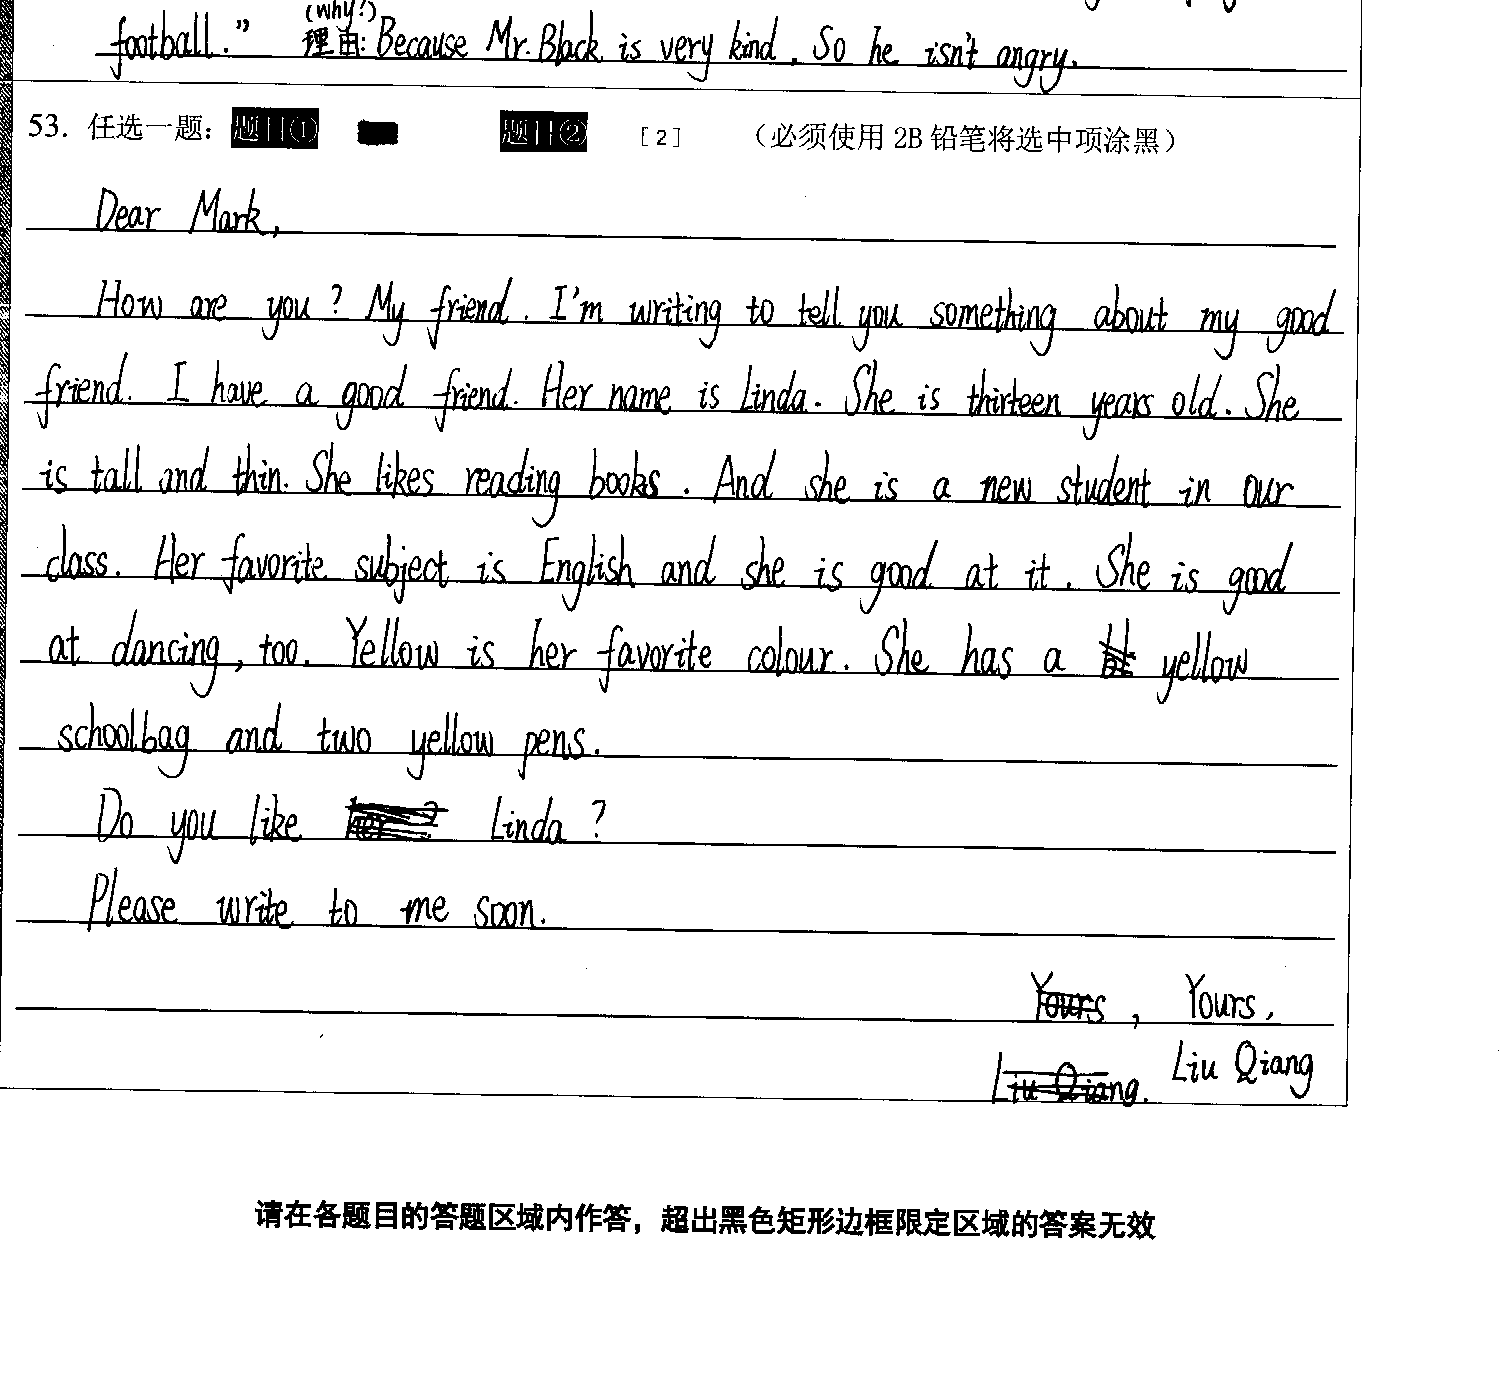 (why?)
football." 理由: Because Mr. Black is very kind. So he isn't angry.
53. 任选一题: 题目① 题目② [2] (必须使用 2B 铅笔将选中项涂黑)
Dear Mark,
How are you? My friend. I'm writing to tell you something about my good
friend. I have a good friend. Her name is Linda. She is thirteen years old. She
is tall and thin. She likes reading books. And she is a new student in our
class. Her favorite subject is English and she is good at it. She is good
at dancing, too. Yellow is her favorite colour. She has a yellow
schoolbag and two yellow pens.
Do you like Linda?
Please write to me soon.
Yours, Yours,
Liu Qiang. Liu Qiang
请在各题目的答题区域内作答，超出黑色矩形边框限定区域的答案无效